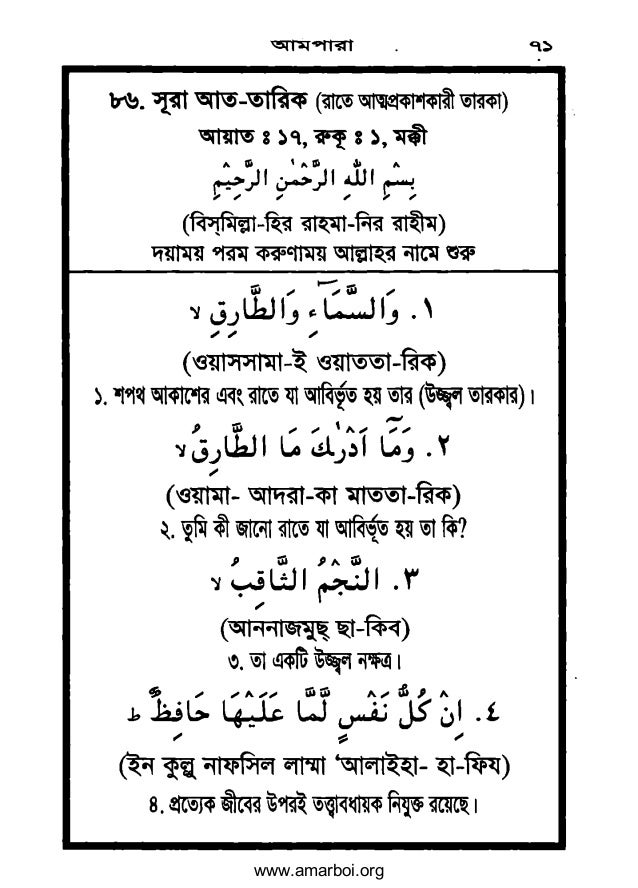 আমপারা ৭১
৮৬. সূরা আত-তারিক (রাতে আত্মপ্রকাশকারী তারকা)
আয়াত ঃ ১৭, রুকূ ঃ ১, মক্কী
بِسْمِ اللّٰهِ الرَّحْمٰنِ الرَّحِيْمِ
(বিস্‌মিল্লা-হির রাহমা-নির রাহীম)
দয়াময় পরম করুণাময় আল্লাহর নামে শুরু
١. وَالسَّمَآءِ وَالطَّارِقِ ۙ
(ওয়াসসামা-ই ওয়াততা-রিক)
১. শপথ আকাশের এবং রাতে যা আবির্ভূত হয় তার (উজ্জ্বল তারকার)।
٢. وَمَآ اَدْرٰىكَ مَا الطَّارِقُ ۙ
(ওয়ামা- আদরা-কা মাততা-রিক)
২. তুমি কী জানো রাতে যা আবির্ভূত হয় তা কি?
٣. النَّجْمُ الثَّاقِبُ ۙ
(আননাজমুছ্ ছা-কিব)
৩. তা একটি উজ্জ্বল নক্ষত্র।
٤. اِنْ كُلُّ نَفْسٍ لَّمَّا عَلَيْهَا حَافِظٌ ؕ
(ইন কুল্লু নাফসিল লাম্মা ‘আলাইহা- হা-ফিয)
৪. প্রত্যেক জীবের উপরই তত্ত্বাবধায়ক নিযুক্ত রয়েছে।
www.amarboi.org